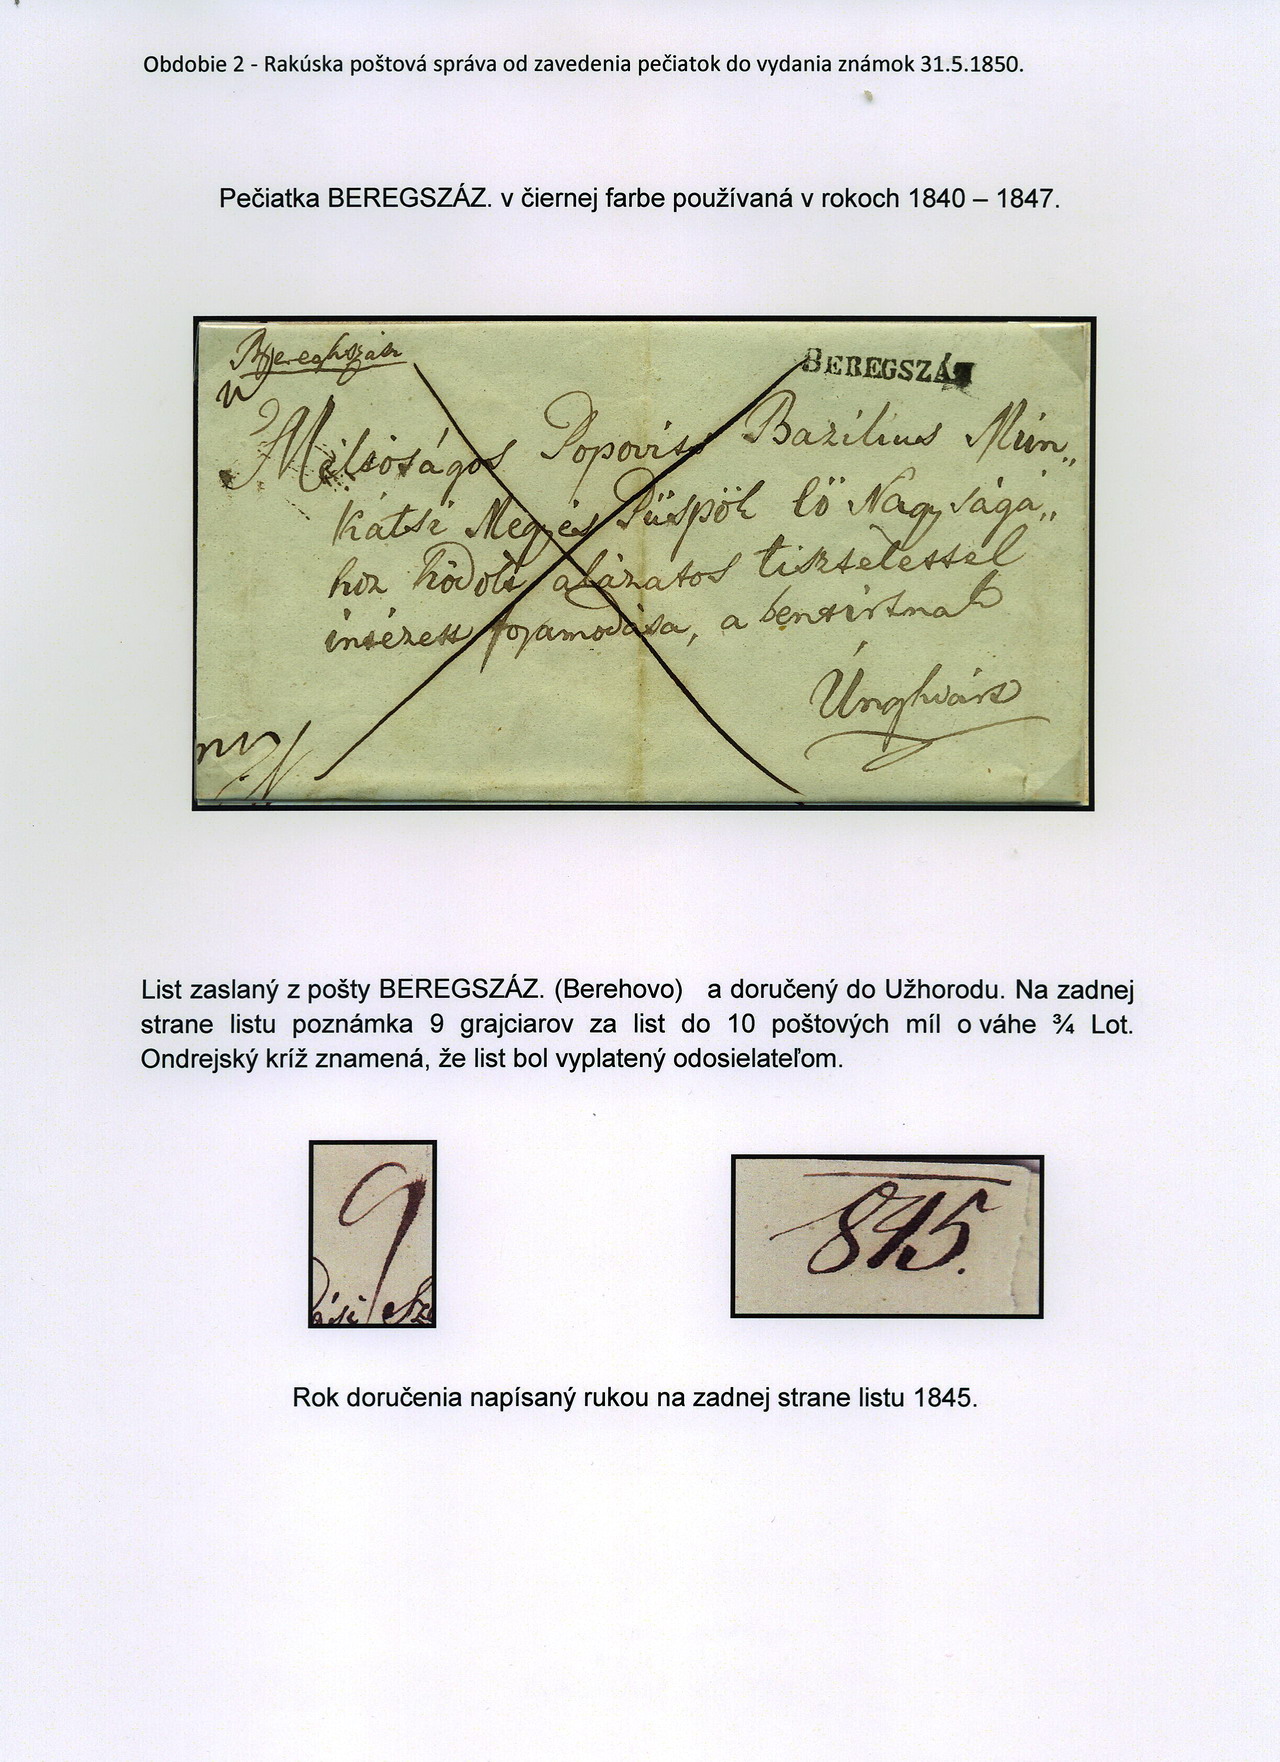 Obdobie 2 - Rakúska poštová správa od zavedenia pečiatok do vydania známok 31.5.1850.
Pečiatka BEREGSZÁZ. v čiernej farbe používaná v rokoch 1840 – 1847.
Bereghszász
BEREGSZÁ
Méltóságos Popovits Bazilius Mun„
kátsi Megyés Püspök eö Nagyságá„
hoz hódoló alázatos tisztelettel
intézett folyamodása, a bentirtnak
Unghvárt
List zaslaný z pošty BEREGSZÁZ. (Berehovo) a doručený do Užhorodu. Na zadnej
strane listu poznámka 9 grajciarov za list do 10 poštových míl o váhe ¾ Lot.
Ondrejský kríž znamená, že list bol vyplatený odosielateľom.
9
845.
Rok doručenia napísaný rukou na zadnej strane listu 1845.